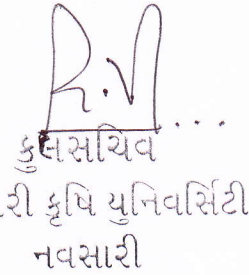 R.V...
કુલસચિવ
રી કૃષિ યુનિવર્સિટી
નવસારી